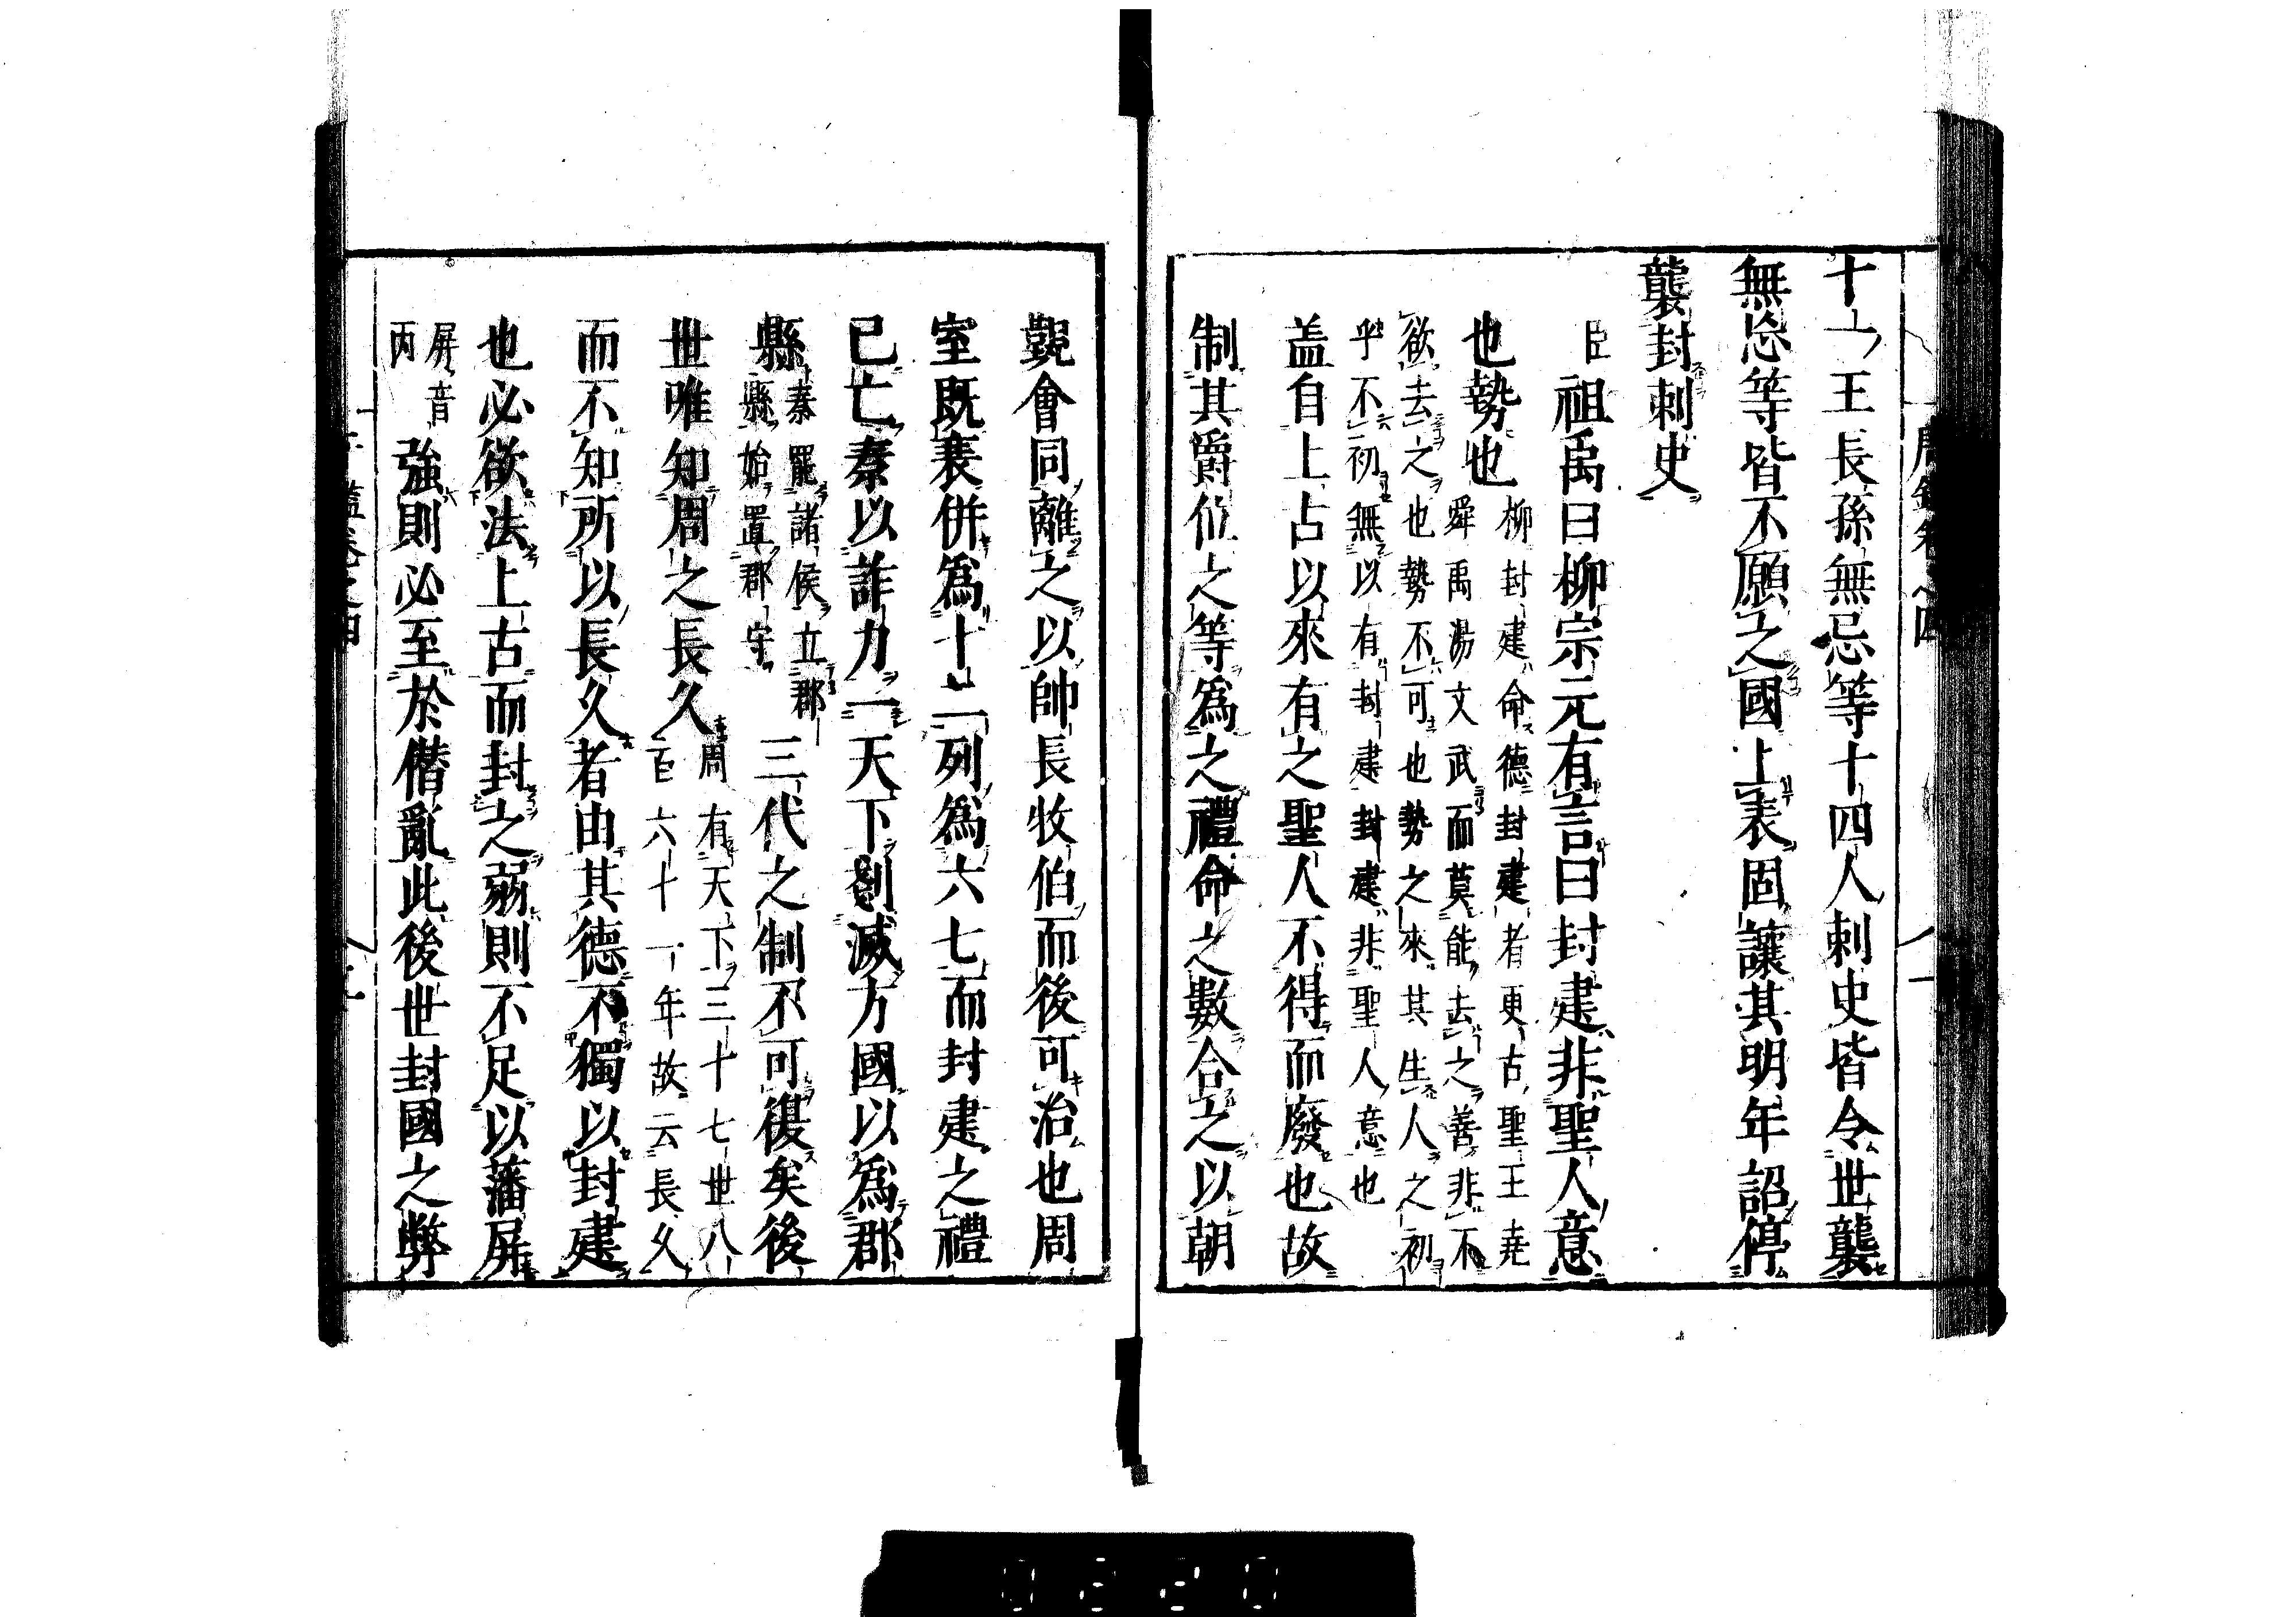 十一王長孫無忌等十四人刺史皆令世襲
無忌等皆不願之國上表固讓其明年詔停
襲封刺史
臣祖禹曰柳宗元有言曰封建非聖人意
也勢也
柳封建命德封建者更古聖王堯
舜禹湯文武而莫能去之善非不
欲去之也勢不可也勢之來其生人之初
乎不初無以有封建封建非聖人意也
盖自上古以來有之聖人不得而廢也故
制其爵位之等爲之禮命之數合之以朝
覲會同離之以帥長牧伯而後可治也周
室既衰併爲十二列爲六七而封建之禮
已亡秦以詐力一天下剗滅方國以爲郡
縣
秦罷諸侯立郡
縣始置郡守
三代之制不可復矣後
世唯知周之長久
周有天下三十七世八
百六十一年故云長久
而不知所以長久者由其德不獨以封建
也必欲法上古而封之弱則不足以藩屏
屏音
丙
強則必至於僭亂此後世封國之弊